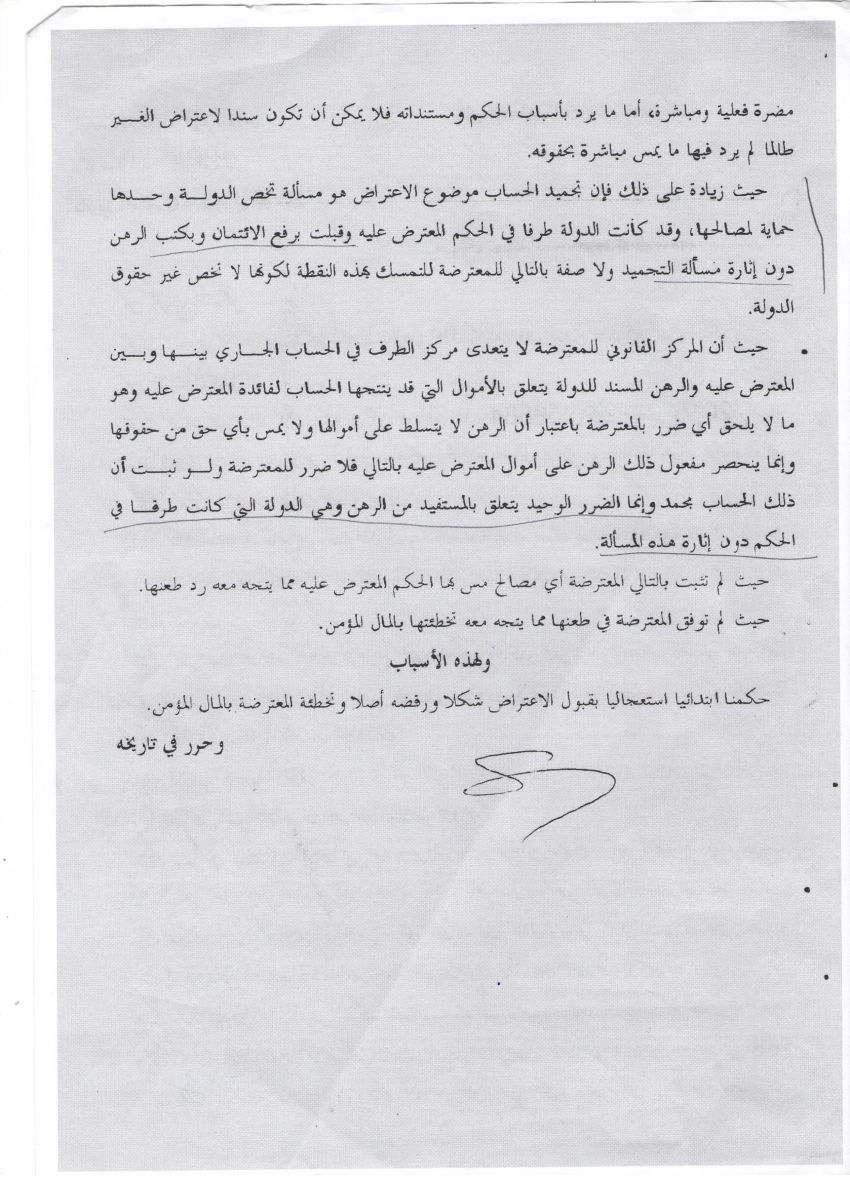 مضرة فعلية ومباشرة، أما ما يرد بأسباب الحكم ومستنداته فلا يمكن أن تكون سندا لاعتراض الغير
طالما لم يرد فيها ما يمس مباشرة بحقوقه.
حيث زيادة على ذلك فإن تجميد الحساب موضوع الاعتراض هو مسألة تخص الدولة وحدها
حماية لمصالحها، وقد كانت الدولة طرفا في الحكم المعترض عليه وقبلت برفع الائتمان وبكتب الرهن
دون إثارة مسألة التجميد ولا صفة بالتالي للمعترضة للتمسك بهذه النقطة لكونها لا تخص غير حقوق
الدولة.
حيث أن المركز القانوني للمعترضة لا يتعدى مركز الطرف في الحساب الجاري بينها وبين
المعترض عليه والرهن المسند للدولة يتعلق بالأموال التي قد ينتجها الحساب لفائدة المعترض عليه وهو
ما لا يلحق أي ضرر بالمعترضة باعتبار أن الرهن لا يتسلط على أموالها ولا يمس بأي حق من حقوقها
وإنما ينحصر مفعول ذلك الرهن على أموال المعترض عليه بالتالي فلا ضرر للمعترضة ولو ثبت أن
ذلك الحساب مجمد وإنما الضرر الوحيد يتعلق بالمستفيد من الرهن وهي الدولة التي كانت طرفا في
الحكم دون إثارة هذه المسألة.
حيث لم تثبت بالتالي المعترضة أي مصالح مس بها الحكم المعترض عليه مما يتجه معه رد طعنها.
حيث لم توفق المعترضة في طعنها مما يتجه معه تخطئتها بالمال المؤمن.
ولهذه الأسباب
حكمنا ابتدائيا استعجاليا بقبول الاعتراض شكلا ورفضه أصلا وتخطئة المعترضة بالمال المؤمن.
وحرر في تاريخه